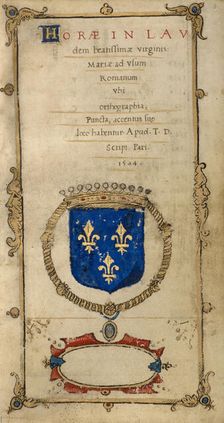 HORÆ IN LAV
dem beatissimæ virginis
Mariæ ad vsum
Romanum
vbi
orthographia,
Puncta, accentus suis
locis habentur. Apud. T. D.
Script. Pari.
1544